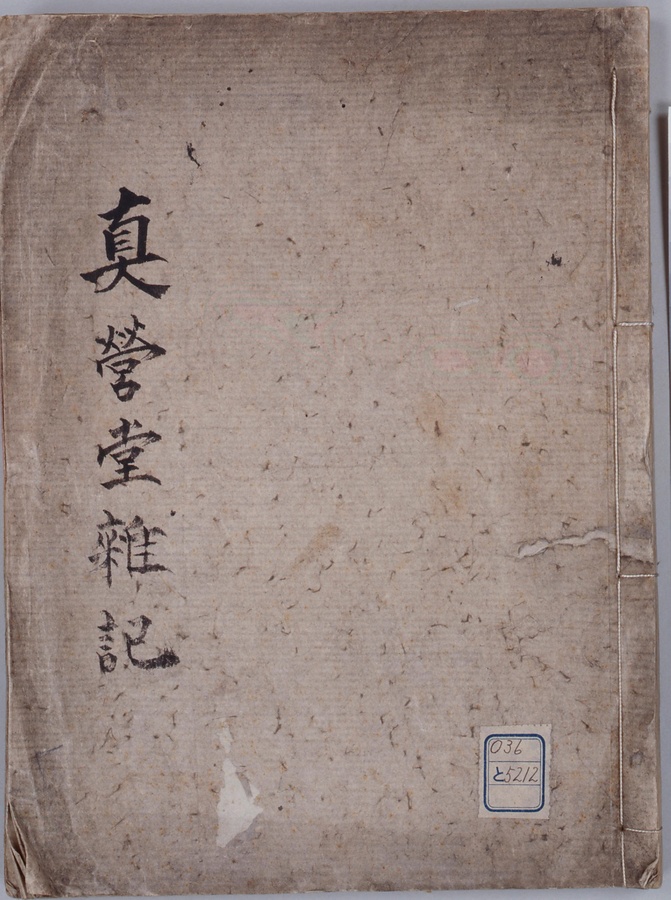 真營堂雜記
036
と5212